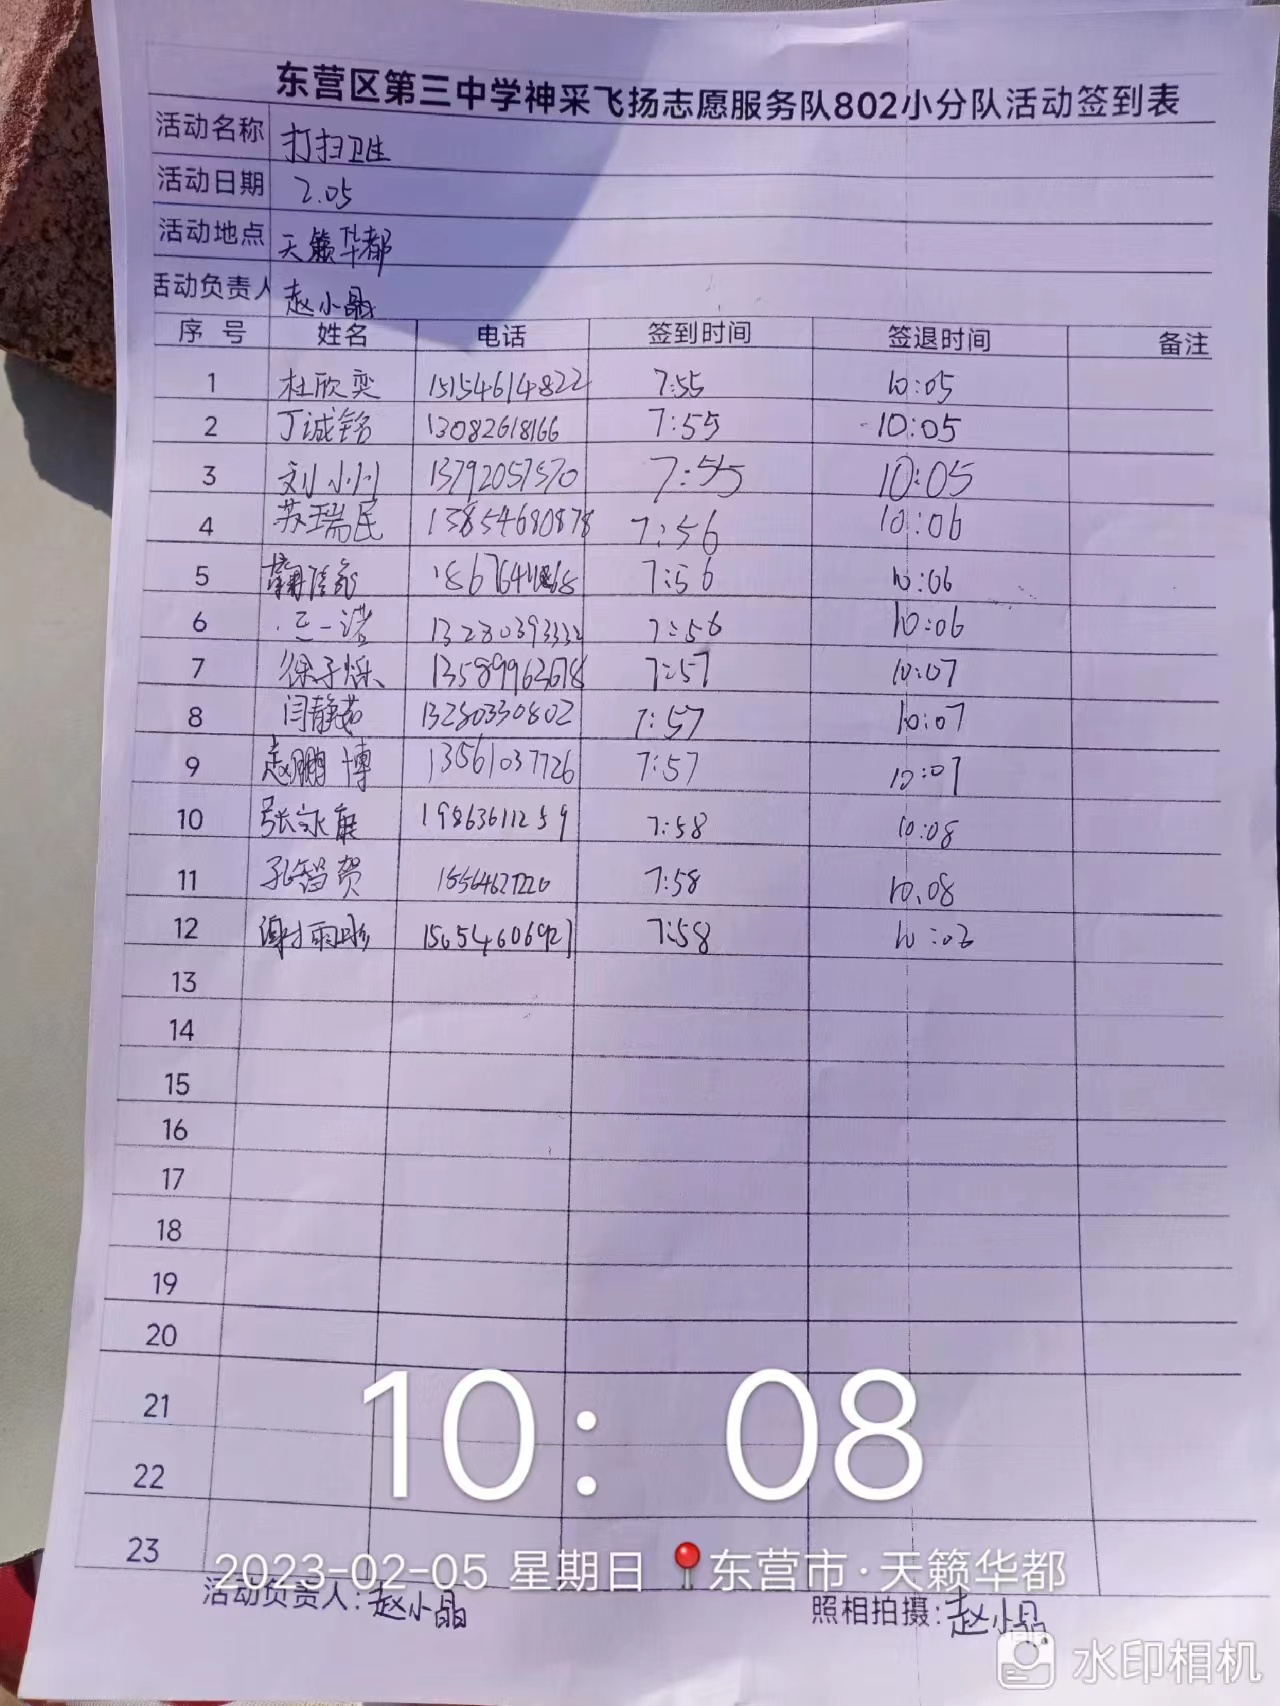 东营区第三中学神采飞扬志愿服务队802小分队活动签到表
活动名称 打扫卫生
活动日期 2.05
活动地点 天籁华都
活动负责人 赵小晶
序号 姓名 电话 签到时间 签退时间 备注
1 杜欣奕 15154614822 7:55 10:05
2 丁诚铭 13082618166 7:55 10:05
3 刘小川 13792057570 7:55 10:05
4 苏瑞民 13854680878 7:56 10:06
5 7:56 10:06
6 13280393332 7:56 10:06
7 徐子烁 13589963678 7:57 10:07
8 闫静茹 13280330802 7:57 10:07
9 赵鹏博 13561037726 7:57 10:07
10 张家康 19863611259 7:58 10:08
11 孔智贺 18564627220 7:58 10.08
12 谢雨彤 15654606927 7:58
13
14
15
16
17
18
19
20
21
22
23
10:08
2023-02-05 星期日 东营市·天籁华都
活动负责人:赵小晶 照相拍摄:赵小晶
水印相机